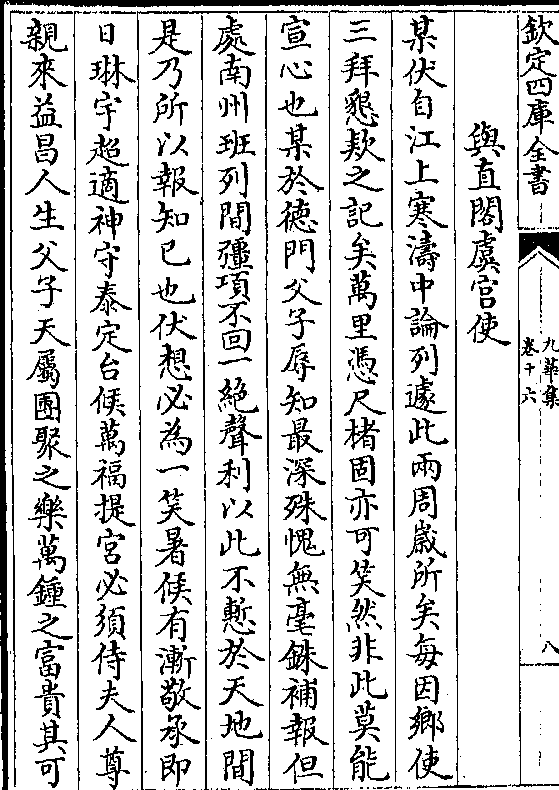 欽定四庫全書
九華集
卷十六
八
與直閣虞宮使
某伏自江上寒濤中論列遽此兩周嵗所矣每因鄉使
三拜懇欵之記矣萬里憑尺楮固亦可笑然非此莫能
宣心也某於徳門父子辱知最深殊愧無毫銖補報但
處南州班列間彊項不回一絶聲利以此不慙於天地間
是乃所以報知已也伏想必為一笑暑候有漸敬承即
日琳宇超適神守泰定台候萬福提宮必須侍夫人尊
親來益昌人生父子天屬團聚之樂萬鍾之富貴其可